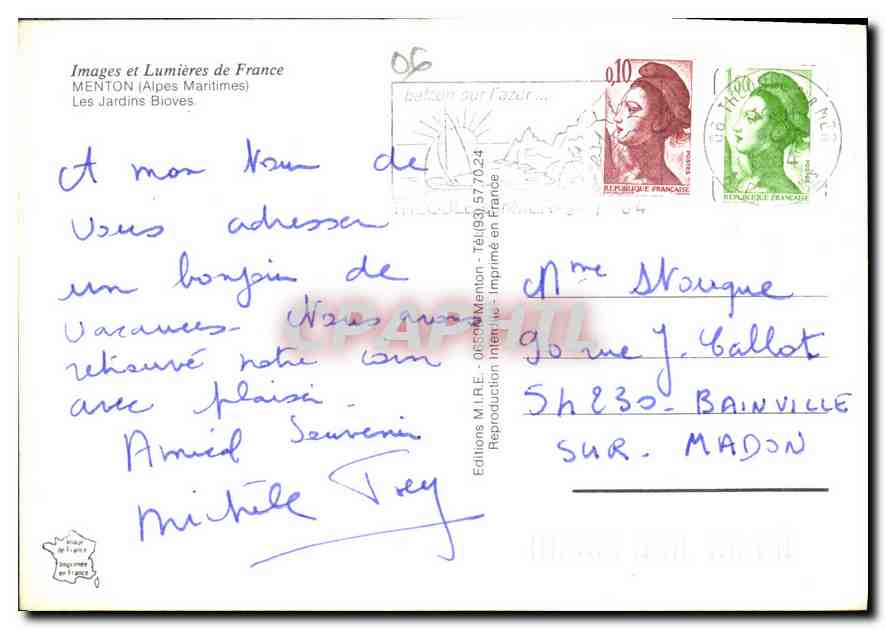 Images et Lumières de France
MENTON (Alpes Maritimes)
Les Jardins Bioves.
06
balcon sur l'azur...
0,10
POSTES
REPUBLIQUE FRANÇAISE
POSTES
REPUBLIQUE FRANÇAISE
06 TH
R MER
A mon tour de
vous adresser
un bonjour de
vacances. Nous avons
retrouvé notre coin
avec plaisir.
Amical Souvenir
Michèle
Editions M.I.R.E. - Menton - Tél.(93) 57.70.24
Reproduction Interdite - Imprimé en France
CPAPHIL
Mme
90 rue J. Callot
54230 - BAINVILLE
SUR - MADON
Image
de France
Imprimée
en France